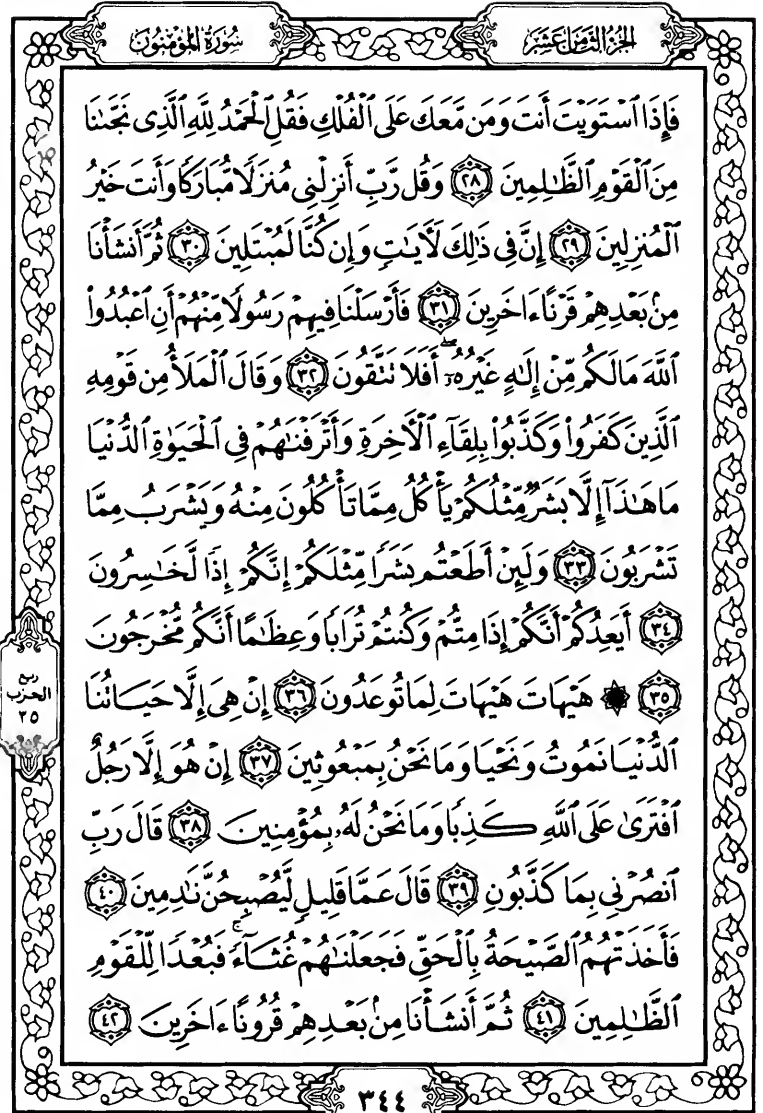 الجزء الثامن عشر
سورة المؤمنون
فَإِذَا ٱسْتَوَيْتَ أَنتَ وَمَن مَّعَكَ عَلَى ٱلْفُلْكِ فَقُلِ ٱلْحَمْدُ لِلَّهِ ٱلَّذِى نَجَّىٰنَا
مِنَ ٱلْقَوْمِ ٱلظَّٰلِمِينَ ٢٨ وَقُل رَّبِّ أَنزِلْنِى مُنزَلًا مُّبَارَكًا وَأَنتَ خَيْرُ
ٱلْمُنزِلِينَ ٢٩ إِنَّ فِى ذَٰلِكَ لَأٓيَٰتٍ وَإِن كُنَّا لَمُبْتَلِينَ ٣٠ ثُمَّ أَنشَأْنَا
مِنۢ بَعْدِهِمْ قَرْنًا ءَاخَرِينَ ٣١ فَأَرْسَلْنَا فِيهِمْ رَسُولًا مِّنْهُمْ أَنِ ٱعْبُدُوا۟
ٱللَّهَ مَا لَكُم مِّنْ إِلَٰهٍ غَيْرُهُۥٓ ۖ أَفَلَا تَتَّقُونَ ٣٢ وَقَالَ ٱلْمَلَأُ مِن قَوْمِهِ
ٱلَّذِينَ كَفَرُوا۟ وَكَذَّبُوا۟ بِلِقَآءِ ٱلْأَخِرَةِ وَأَتْرَفْنَٰهُمْ فِى ٱلْحَيَوٰةِ ٱلدُّنْيَا
مَا هَٰذَآ إِلَّا بَشَرٌ مِّثْلُكُمْ يَأْكُلُ مِمَّا تَأْكُلُونَ مِنْهُ وَيَشْرَبُ مِمَّا
تَشْرَبُونَ ٣٣ وَلَئِنْ أَطَعْتُم بَشَرًا مِّثْلَكُمْ إِنَّكُمْ إِذًا لَّخَٰسِرُونَ
٣٤ أَيَعِدُكُمْ أَنَّكُمْ إِذَا مِتُّمْ وَكُنتُمْ تُرَابًا وَعِظَٰمًا أَنَّكُم مُّخْرَجُونَ
٣٥ ۞ هَيْهَاتَ هَيْهَاتَ لِمَا تُوعَدُونَ ٣٦ إِنْ هِىَ إِلَّا حَيَاتُنَا
ٱلدُّنْيَا نَمُوتُ وَنَحْيَا وَمَا نَحْنُ بِمَبْعُوثِينَ ٣٧ إِنْ هُوَ إِلَّا رَجُلٌ
ٱفْتَرَىٰ عَلَى ٱللَّهِ كَذِبًا وَمَا نَحْنُ لَهُۥ بِمُؤْمِنِينَ ٣٨ قَالَ رَبِّ
ٱنصُرْنِى بِمَا كَذَّبُونِ ٣٩ قَالَ عَمَّا قَلِيلٍ لَّيُصْبِحُنَّ نَٰدِمِينَ ٤٠
فَأَخَذَتْهُمُ ٱلصَّيْحَةُ بِٱلْحَقِّ فَجَعَلْنَٰهُمْ غُثَآءً ۚ فَبُعْدًا لِّلْقَوْمِ
ٱلظَّٰلِمِينَ ٤١ ثُمَّ أَنشَأْنَا مِنۢ بَعْدِهِمْ قُرُونًا ءَاخَرِينَ ٤٢
ربع
الحزب
٣٥
٣٤٤